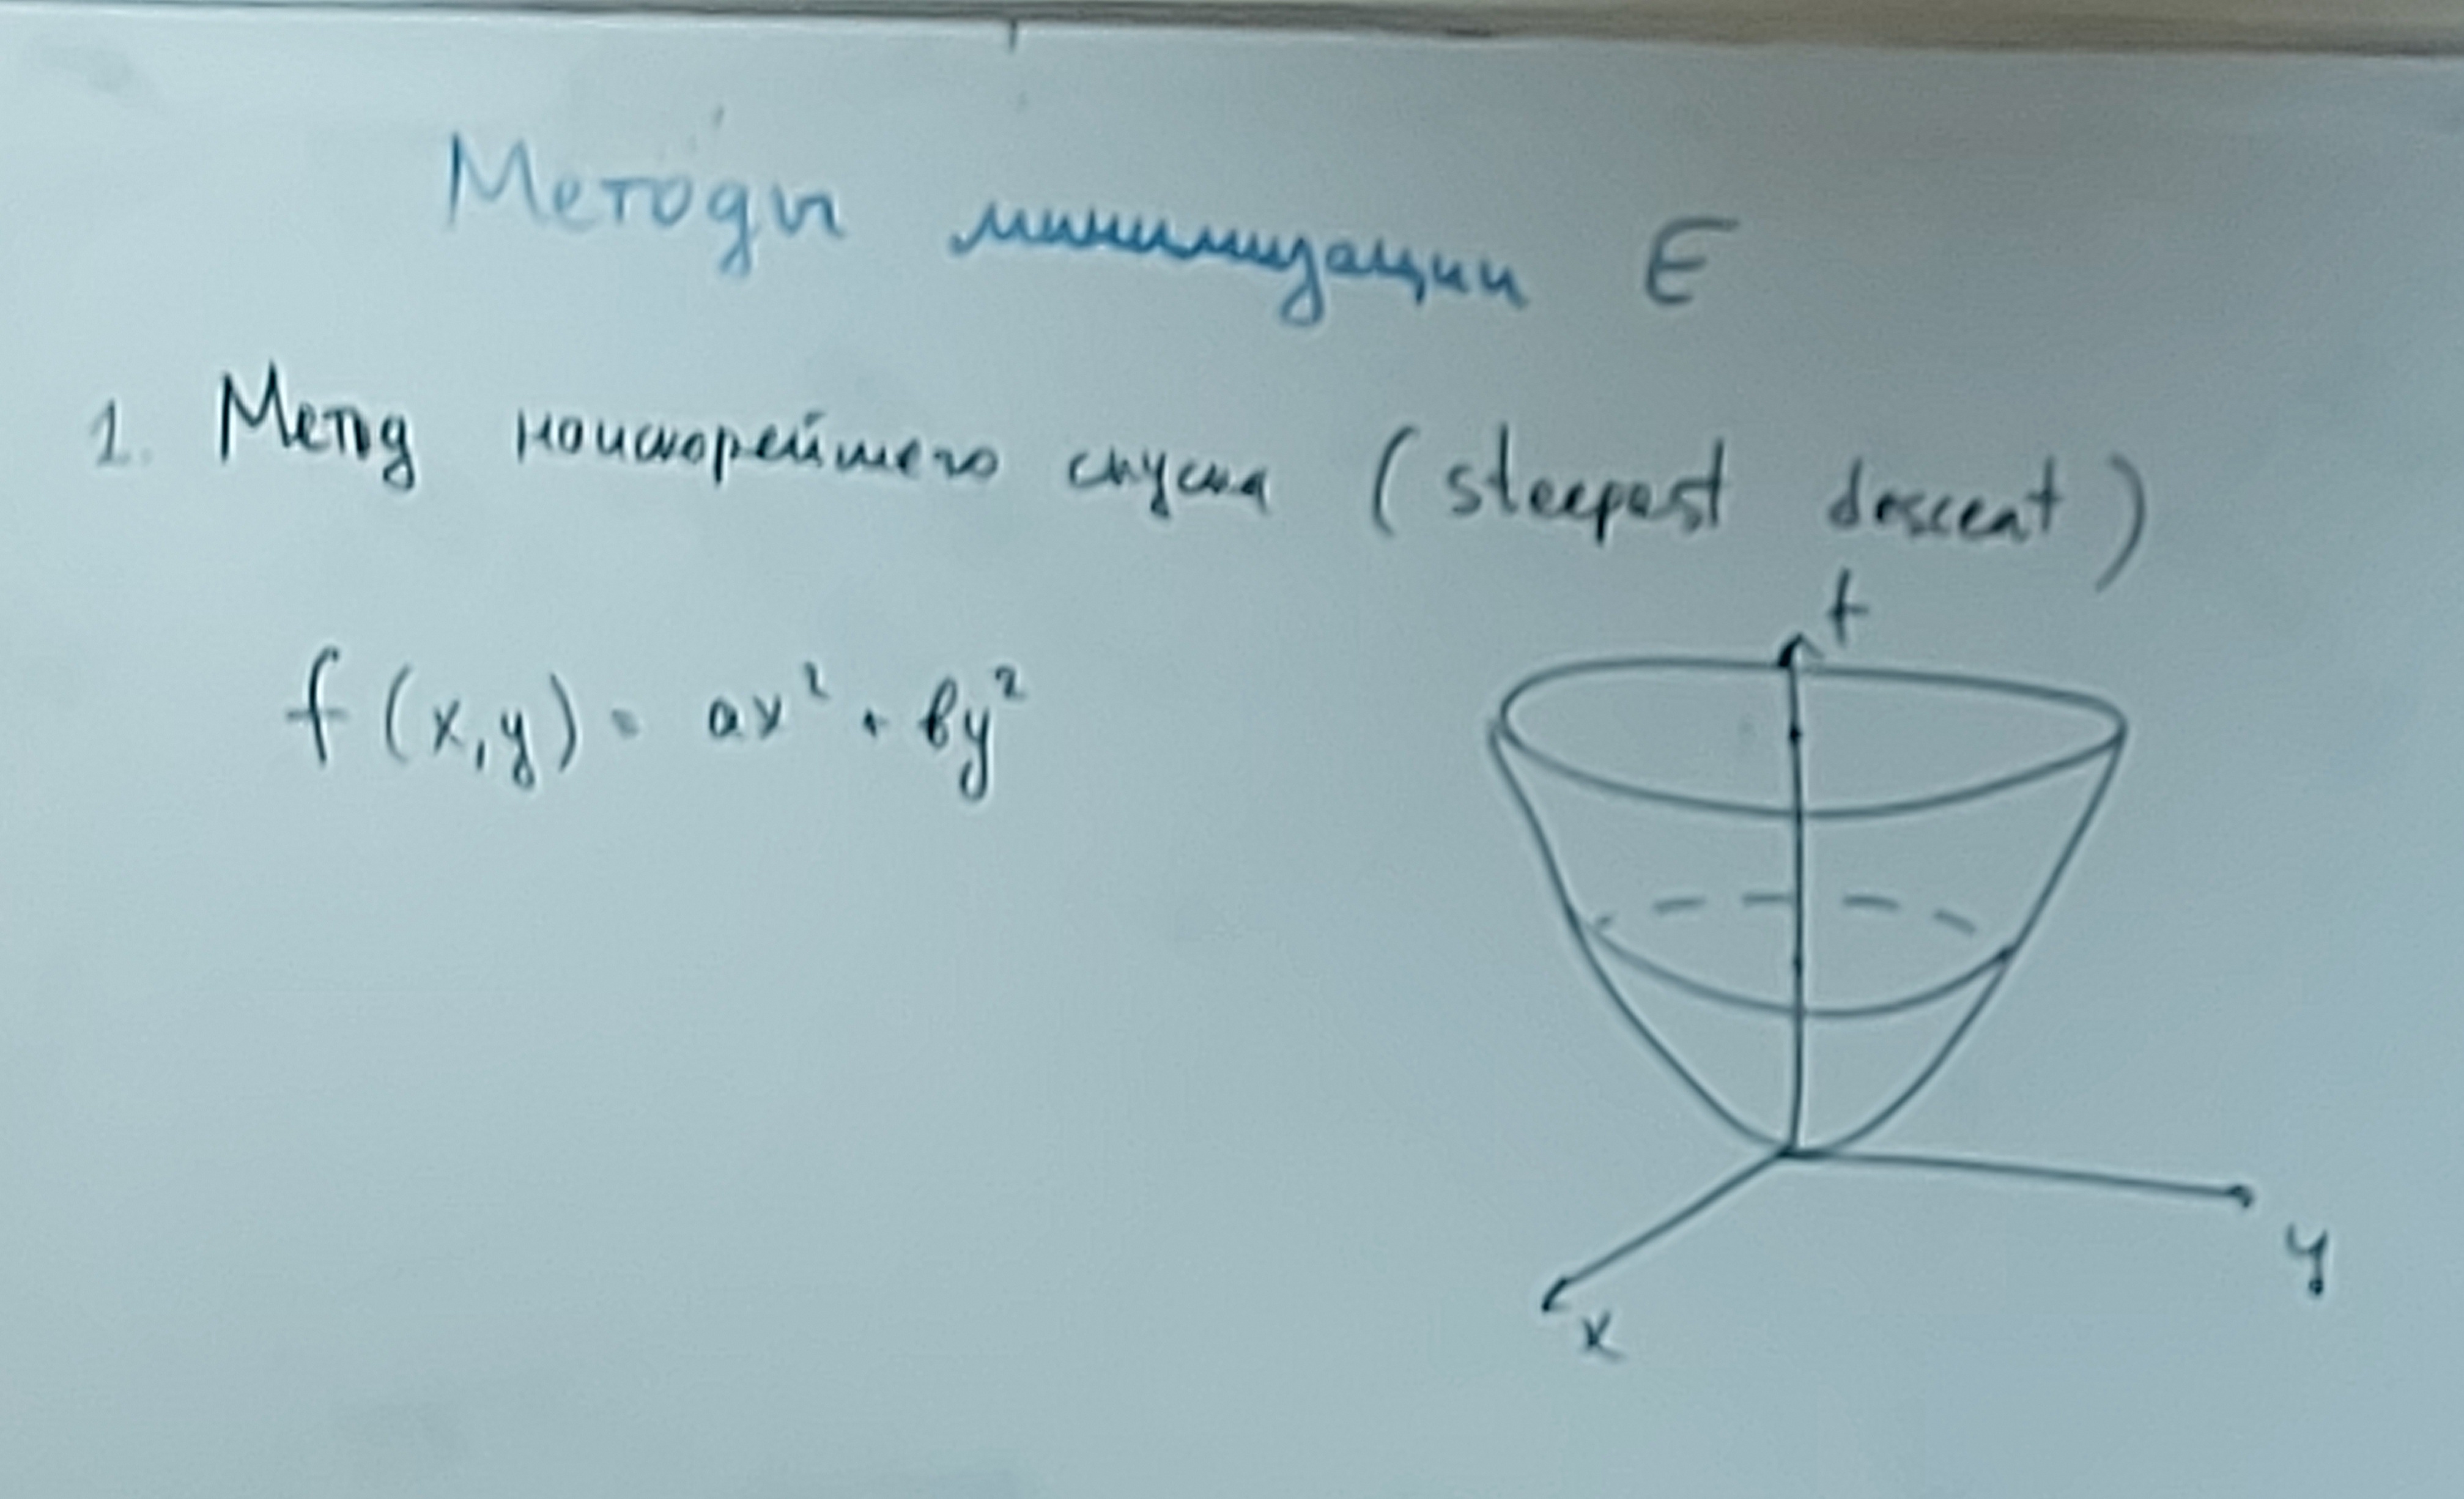 Методы минимизации E
1. Метод наискорейшего спуска (steepest descent)
f
f(x,y) = ax² + by²
y
x